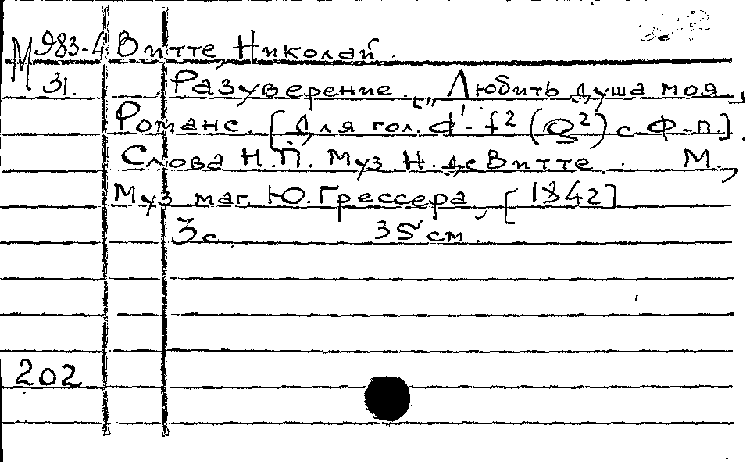 М 983-4 Витте, Николай.
31. Разуверение. „Любить душа моя„
Романс. [Для гол. d¹-f² (a²) с ф-п.].
Слова Н.П. Муз Н. де Витте. М.,
Муз маг. Ю. Грессера, [1842]
3с. 35 см.
202